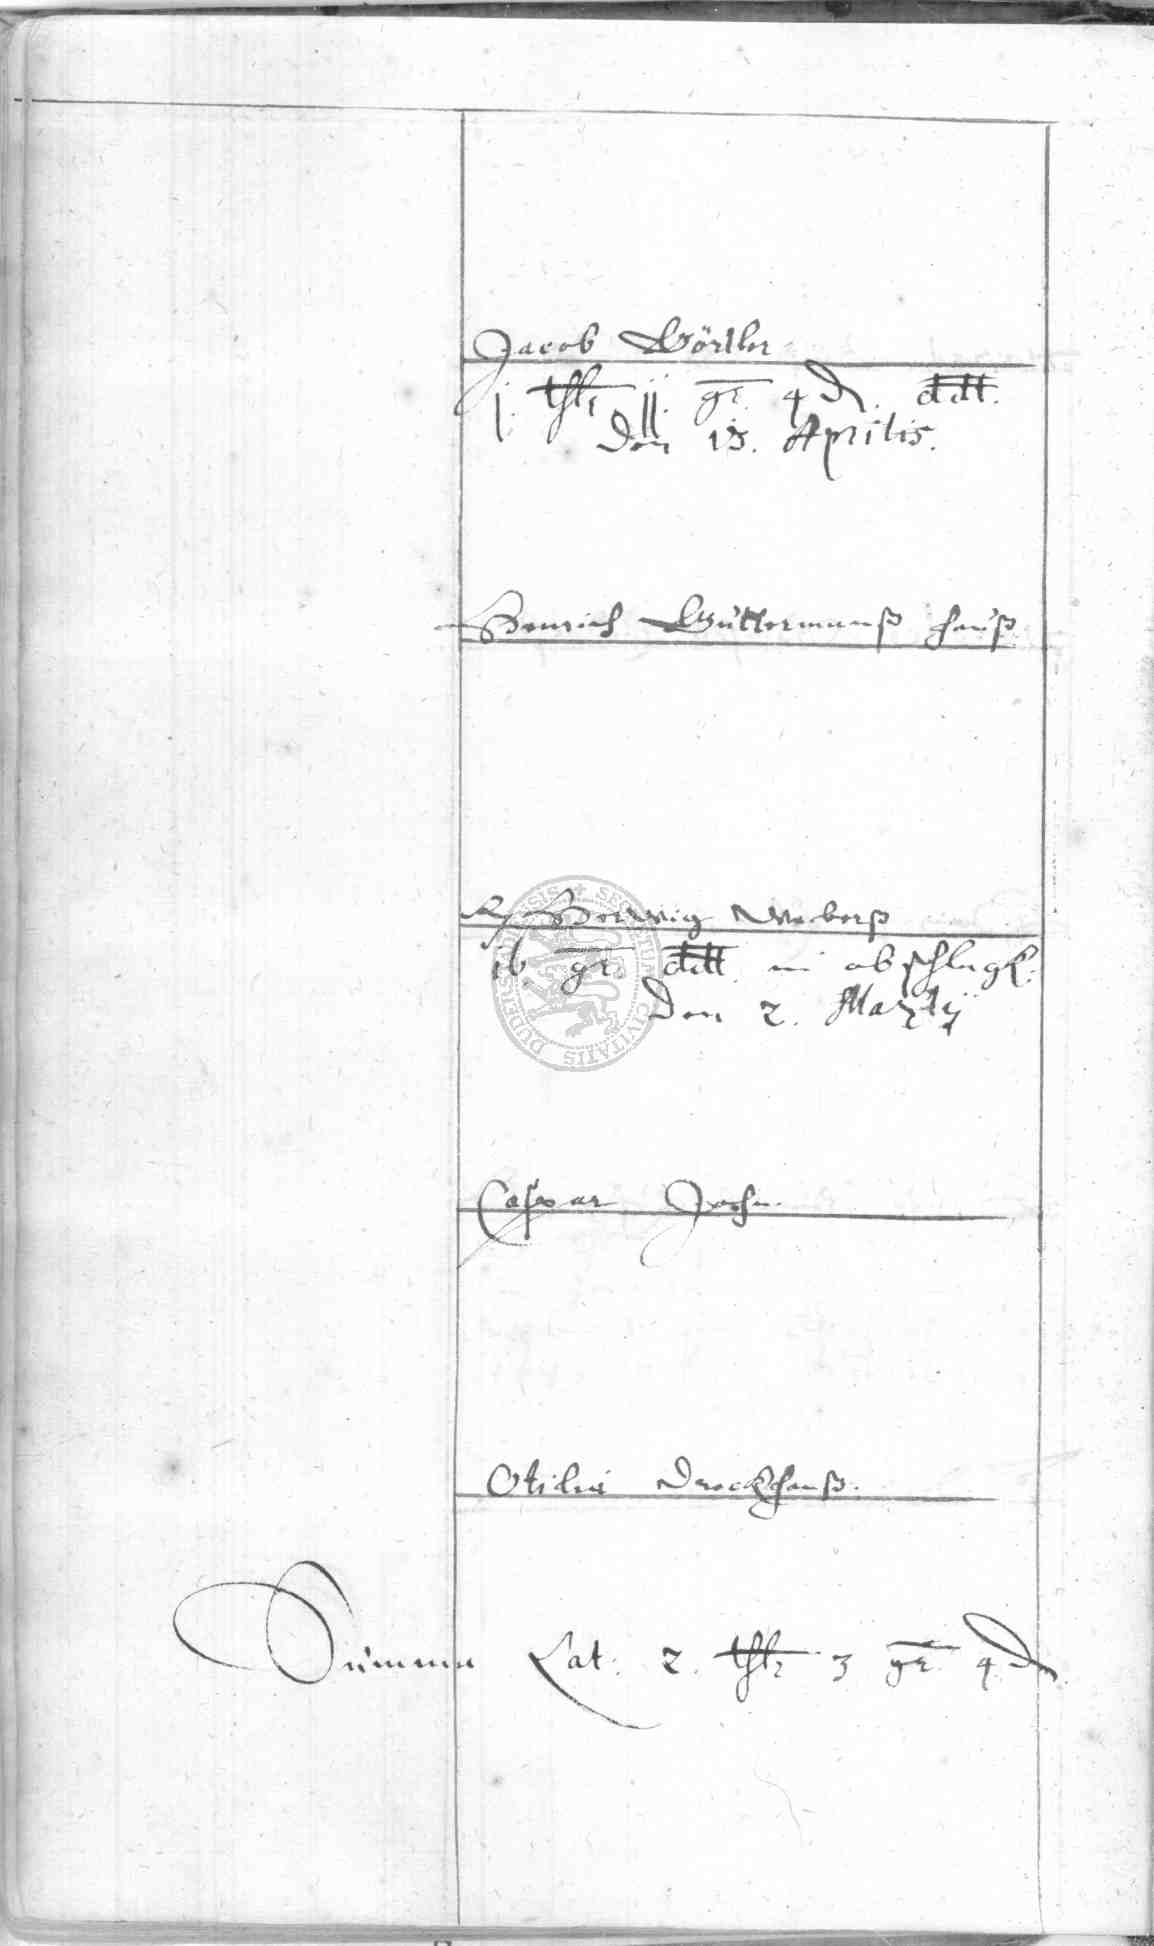 Jacob Wörtler
j. thlr jj. gr. 4 ₰. dedit.
den 13. Aprilis.
Henrich Guttermanß hauß
Herwig Weberß
16 gr. dedit in abschlagk.
Den 2. Martij
Caspar Jochn.
Otilia Dreckhauß.
Summa Lat. 2. thlr 3 gr. 4 ₰.
SECRETUM CIVITATIS DUDERSTADENSIS